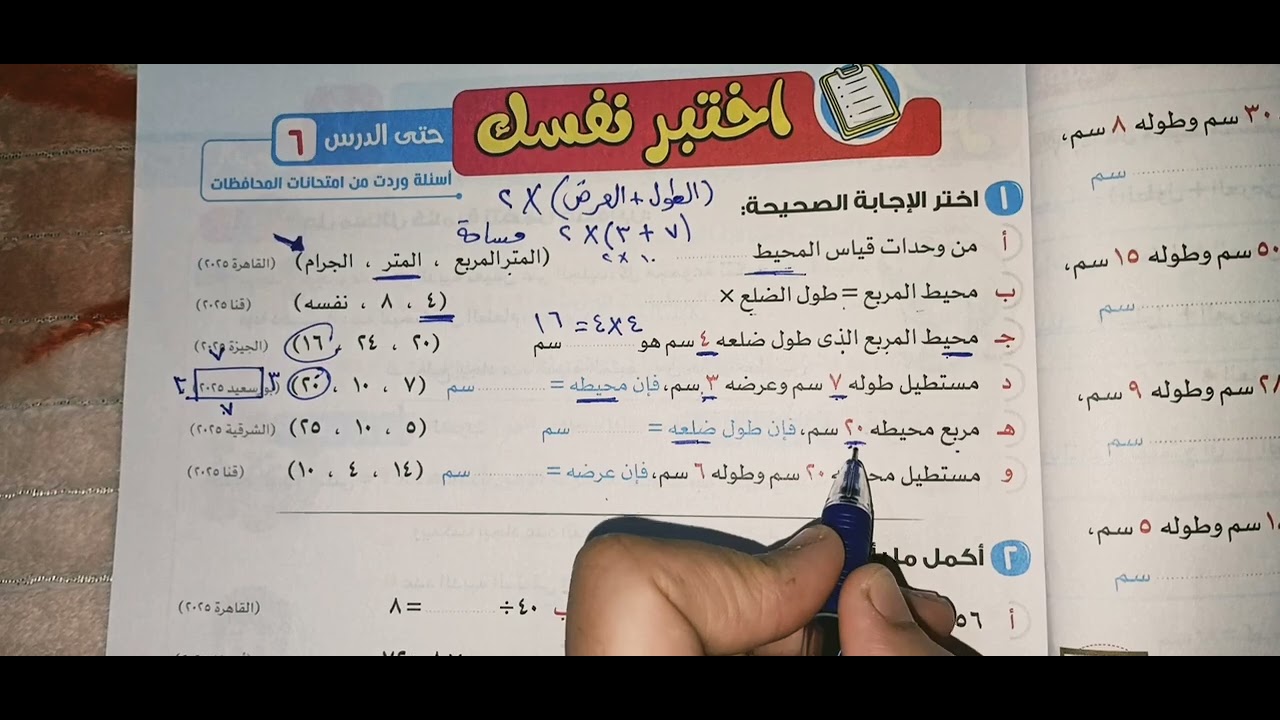 اختبر نفسك
حتى الدرس ٦
أسئلة وردت من امتحانات المحافظات
١ اختر الإجابة الصحيحة:
(الطول + العرض) × ٢
(٧ + ٣) × ٢ مساحة
١٠ × ٢
أ من وحدات قياس المحيط .......... (المتر المربع ، المتر ، الجرام) (القاهرة ٢٠٢٥)
ب محيط المربع = طول الضلع × .......... (٤ ، ٨ ، نفسه) (قنا ٢٠٢٥)
٤ × ٤ = ١٦
جـ محيط المربع الذى طول ضلعه ٤ سم هو .......... سم (٢٠ ، ٢٤ ، ١٦) (الجيزة ٢٠٢٥)
٧
د مستطيل طوله ٧ سم وعرضه ٣ سم، فإن محيطه = .......... سم (٧ ، ١٠ ، ٢٠) سعيد ٢٠٢٥ ٣ ٣
٧
هـ مربع محيطه ٢٠ سم، فإن طول ضلعه = .......... سم (٥ ، ١٠ ، ٢٥) (الشرقية ٢٠٢٥)
و مستطيل ٢٠ سم وطوله ٦ سم، فإن عرضه = .......... سم (١٤ ، ٤ ، ١٠) (قنا ٢٠٢٥)
٢ أكمل
أ ٥٦
ب ٤٠ ÷ .......... = ٨ (القاهرة ٢٠٢٥)
٣٠ سم وطوله ٨ سم،
.......... سم
٥٠ سم وطوله ١٥ سم،
.......... سم
٢٨ سم وطوله ٩ سم،
.......... سم
سم وطوله ٥ سم،
.......... سم